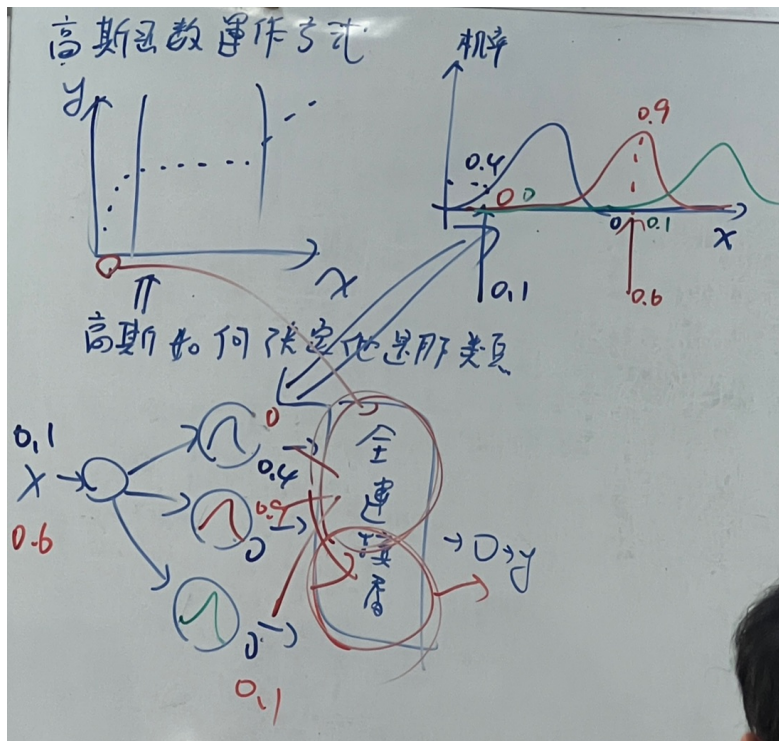 高斯函数運作方式
y
x
机率
0.9
0.4
0
0
0
0.1
x
0.1
0.6
高斯如何決定他是那类頁
0.1
x
0.6
0
0.4
0.9
0
0
0.1
全
連
接
層
y